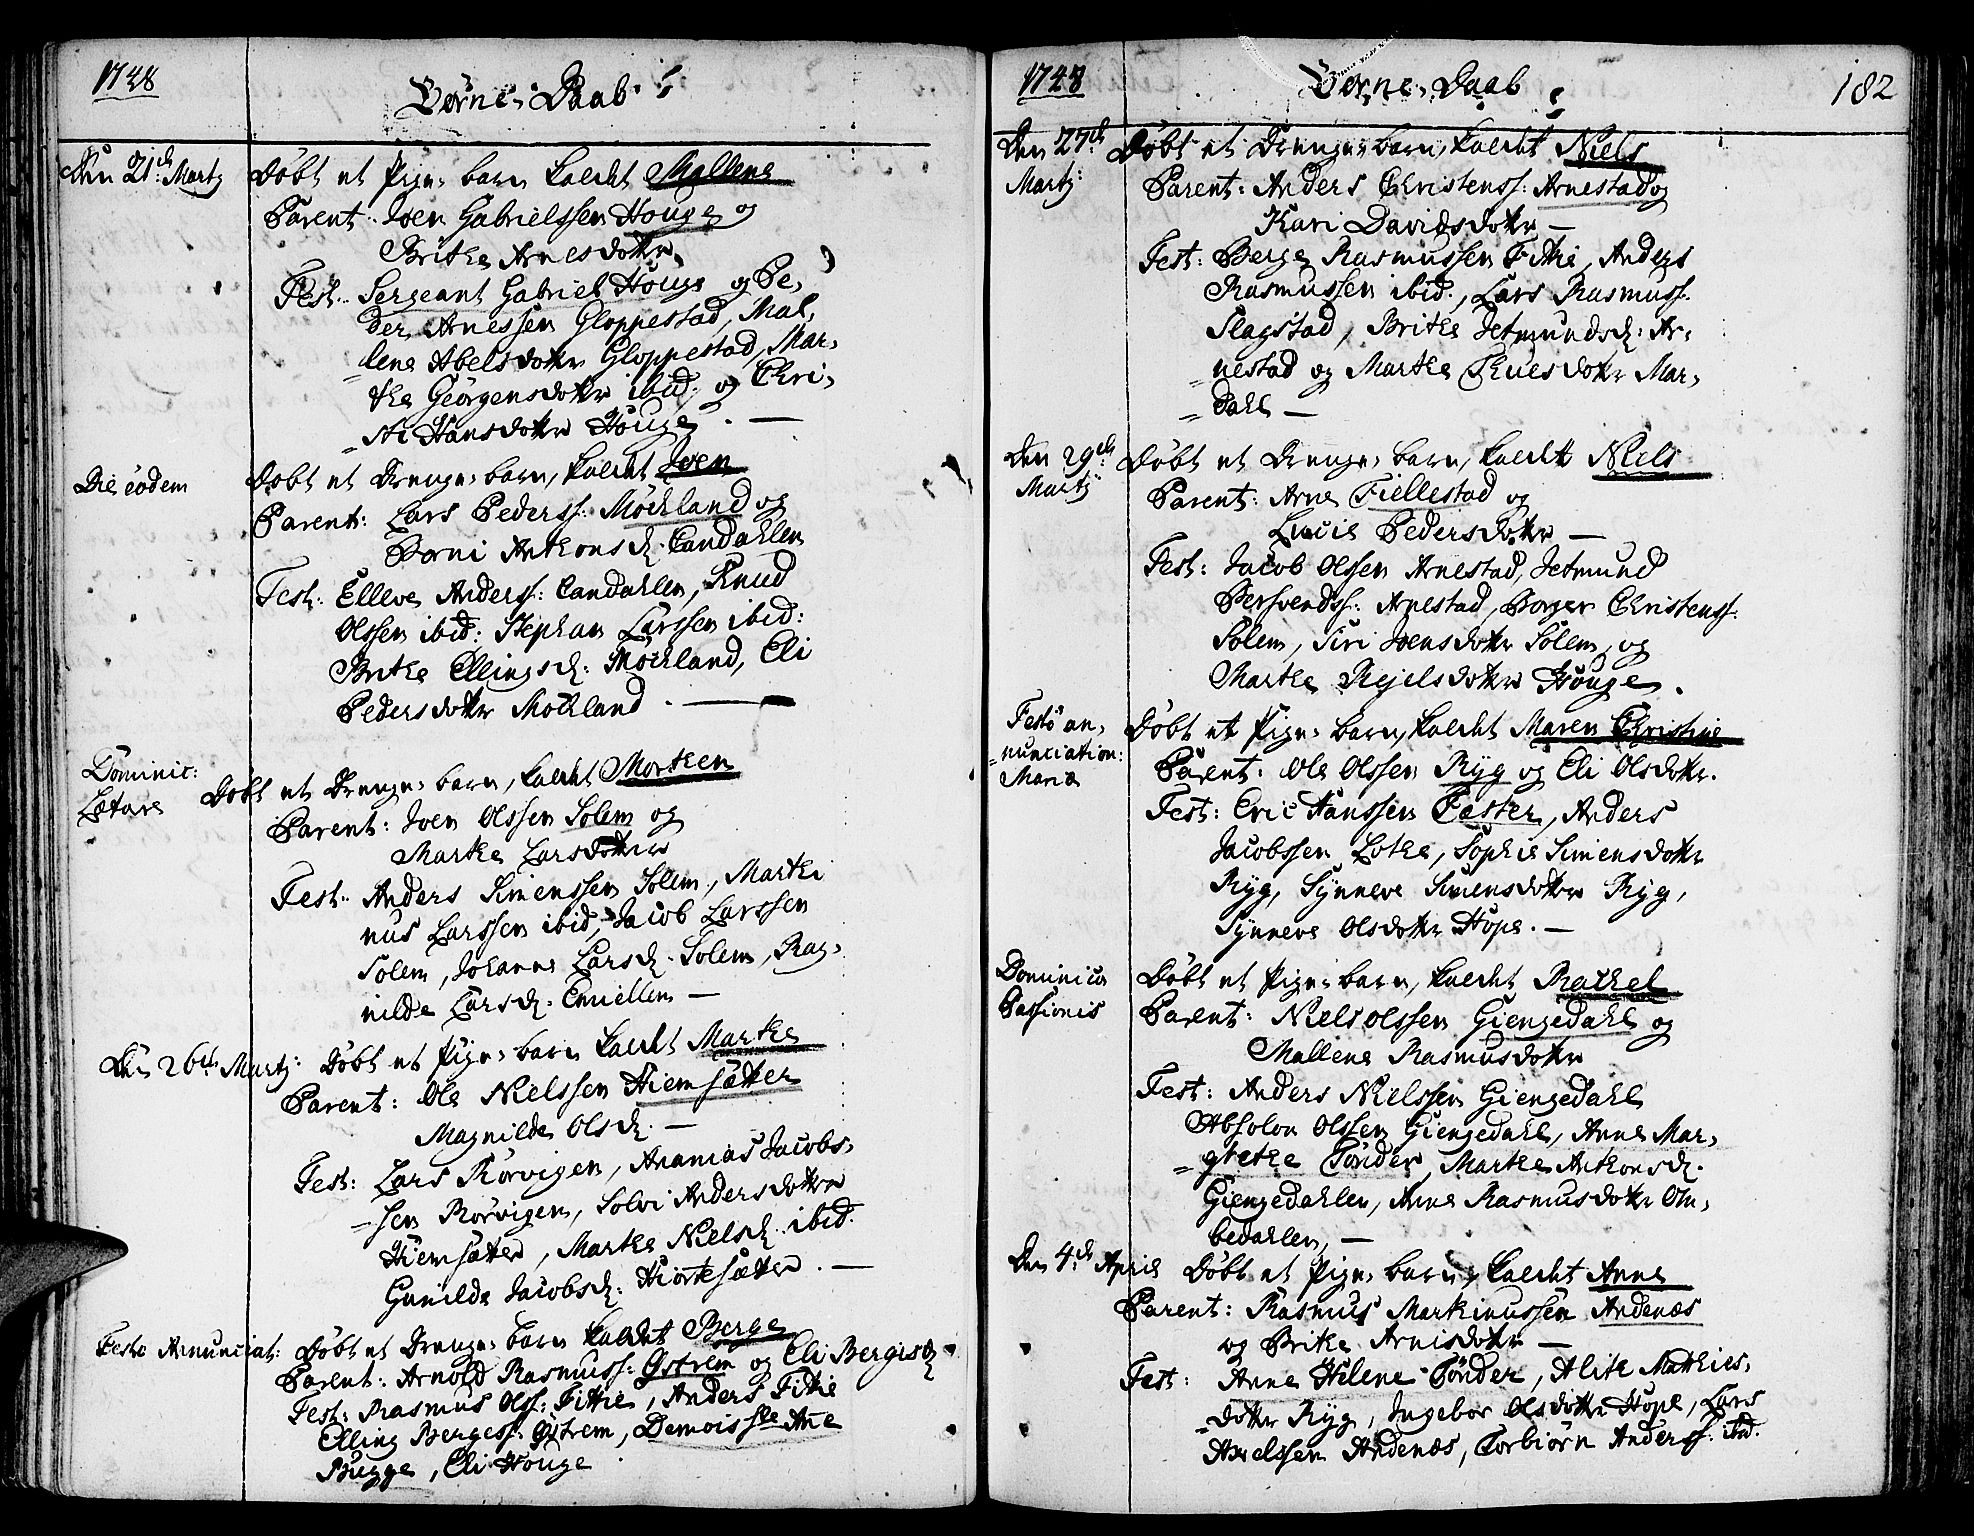 1748
Børne-Daab
Den 21de Martj Døbt et Pige-barn kaldt Mallene
Parent: Joen Gabrielssen Houge og
Brithe Arnesdotter
Test: Sergeant Gabriel Houge og Pe-
der Arnessen Gloppestad, Mal-
lene Abelsdotter Gloppestad, Mar-
the Georgensdotter ibid: og Chri-
sti Hansdotter Houge. —
Die eodem Døbt et Drenge-barn, kaldt Joen
Parent: Lars Pederss: Møchland og
Borni Anthonsd: Sandahlen
Test: Elleve Anderss: Sandahlen, Knud
Olssen ibid: Stephan Larssen ibid:
Brithe Ellingsd: Møchland, Eli
Pedersdotter Mochland. —
Dominic: Lætare Døbt et Drenge-barn, kaldt Morthen
Parent: Joen Olssen Solem og
Marthe Larsdotter
Test: Anders Simenssen Solem, Marthi
nus Larssen ibid, Jacob Larssen
Solem, Johanne Larsd: Solem, Rag-
nilde Larsd: Emiellem —
Den 26de Martj: Døbt et Pige-barn kaldt Marthe
Parent: Ole Nielssen Hiemsætter
Magnilde Olsd: —
Test: Lars Rørvigen, Ananias Jacobs-
sen Rørvigen, Solvi Andersdotter
Hiemsætter, Marthe Nielsd: ibid.
Gunilde Jacobsd: Hiortesætter. —
Festo Annunciat: Døbt et Drenge-barn kaldt Berge
Parent: Arnold Rasmuss: Østrem og Eli Bergisd:
Test: Rasmus Olss: Fittie, Anders Fittie
Elling Bergess: Østrem, Demoisslle Anne
Bugge, Eli Houge
1748
Børne-Daab
182
Den 27de Martj: Døbt et Drenge-barn, kaldt Niels
Parent: Anders Christenss: Arnestad og
Kari Davidsdotter —
Test: Berge Rasmussen Fittie, Anders
Rasmussen ibid., Lars Rasmuss:
Slagstad, Brithe Jetmundsd: Ar-
nestad og Marthe Thuesdotter Mar-
dahl —
Den 29de Martj Døbt et Drenge-barn, kaldt Niels
Parent: Arne Fiellestad og
Lucie Pedersdotter —
Test: Jacob Olssen Arnestad, Jetmund
Persvendss: Arnestad, Borger Christenss:
Solem, Siri Joensdotter Solem, og
Marthe Rejelsdotter Houge.
Festo an-
nunciation:
Mariæ Døbt et Pige-barn, kaldt Maren Christine
Parent: Ole Olssen Ryg og Eli Olsdotter.
Test: Eric Hanssen Fæster, Anders
Jacobssen Lothe, Sophie Simensdotter
Ryg, Synneve Simensdotter Ryg,
Synneve Olsdotter Hope. —
Dominica
Passionis Døbt et Pige-barn, kaldt Rachel
Parent: Niels Olssen Giengedahl og
Mallene Rasmusdotter
Test: Anders Nielssen Giengedahl
Absolon Olssen Giengedahl, Anne Mar-
grethe Tønder, Marthe Anthonsd:
Giengedahlen, Anne Rasmusdotter Om-
bedahlen, —
Den 4de April Døbt et Pige-barn, kaldt Anne
Parent: Rasmus Marthinussen Andenæs
og Brithe Arnisdotter —
Test: Anne Helene Tønder, Alite Mathies-
dotter Ryg, Ingebor Olsdotter Hope, Lars
Axelssen Andenæs, Torbiørn Anderss: ibd.